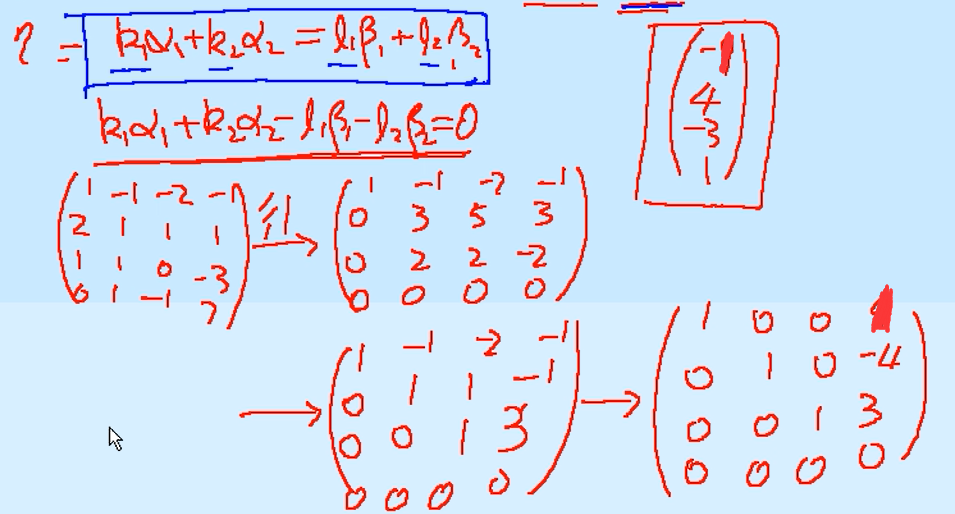 η = k₁α₁+k₂α₂ = l₁β₁+l₂β₂
k₁α₁+k₂α₂-l₁β₁-l₂β₂=0
-1
4
-3
1
1 -1 -2 -1
2 1 1 1
1 1 0 -3
0 1 -1 7
→
1 -1 -2 -1
0 3 5 3
0 2 2 -2
0 0 0 0
→
1 -1 -2 -1
0 1 1 -1
0 0 1 3
0 0 0 0
→
1 0 0 1
0 1 0 -4
0 0 1 3
0 0 0 0